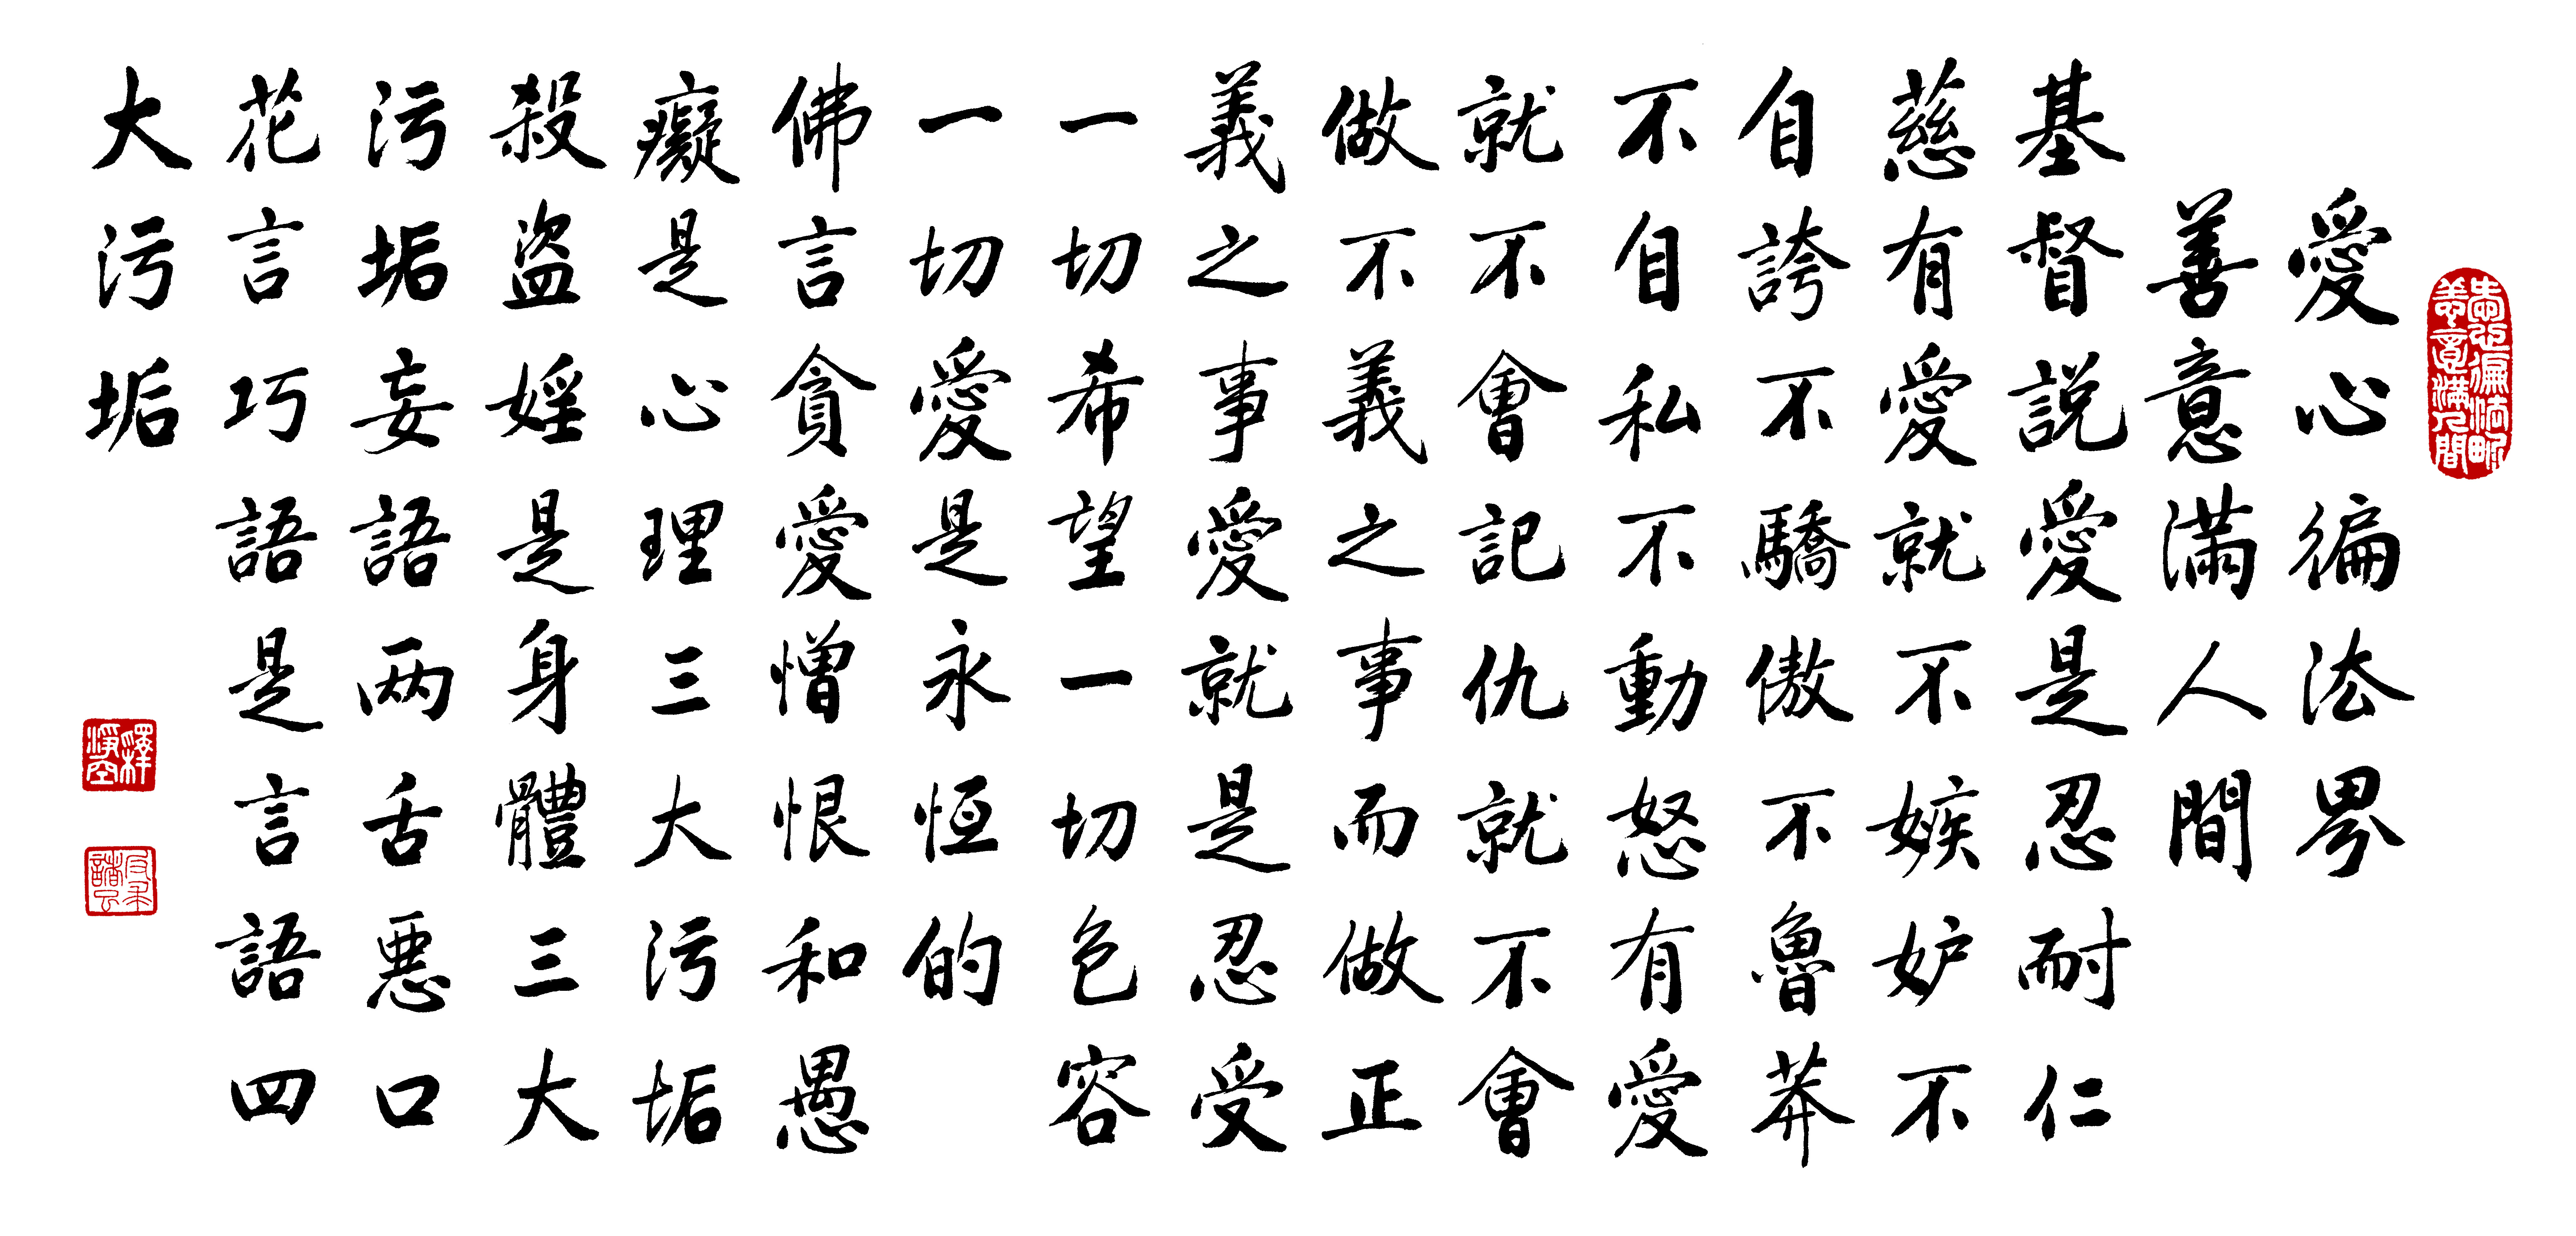 愛心徧法界
善意滿人間
基督說愛是忍耐仁
慈有愛就不嫉妒不
自誇不驕傲不魯莽
不自私不動怒有愛
就不會記仇就不會
做不義之事而做正
義之事愛就是忍受
一切希望一切包容
一切愛是永恒的
佛言貪愛憎恨和愚
癡是心理三大污垢
殺盜婬是身體三大
污垢妄語两舌惡口
花言巧語是言語四
大污垢
愛心徧法界
善意滿人間
釋淨空